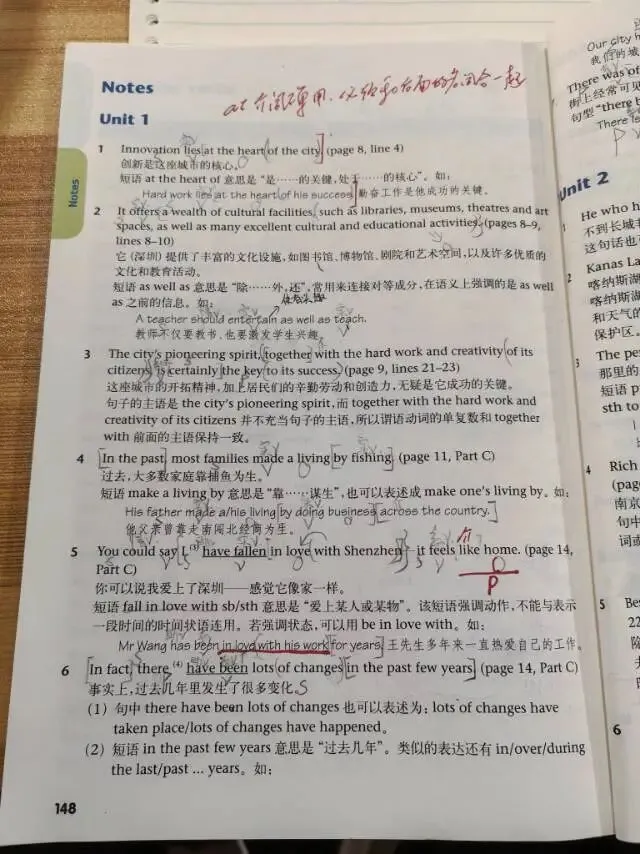 Notes
Unit 1
Notes
1 Innovation lies at the heart of the city. (page 8, line 4)
创新是这座城市的核心。
短语 at the heart of 意思是“是……的关键,处于……的核心”。如:
Hard work lies at the heart of his success. 勤奋工作是他成功的关键。
2 It offers a wealth of cultural facilities, such as libraries, museums, theatres and art
spaces, as well as many excellent cultural and educational activities. (pages 8–9,
lines 8–10)
它 (深圳) 提供了丰富的文化设施,如图书馆、博物馆、剧院和艺术空间,以及许多优质的
文化和教育活动。
短语 as well as 意思是“除……外,还”,常用来连接对等成分,在语义上强调的是 as well
as 之前的信息。如:
A teacher should entertain as well as teach.
教师不仅要教书,也要激发学生兴趣。
3 The city's pioneering spirit, together with the hard work and creativity of its
citizens, is certainly the key to its success. (page 9, lines 21–23)
这座城市的开拓精神,加上居民们的辛勤劳动和创造力,无疑是它成功的关键。
句子的主语是 the city's pioneering spirit,而 together with the hard work and
creativity of its citizens 并不充当句子的主语,所以谓语动词的单复数和 together
with 前面的主语保持一致。
4 In the past, most families made a living by fishing. (page 11, Part C)
过去,大多数家庭靠捕鱼为生。
短语 make a living by 意思是“靠……谋生”,也可以表述成 make one's living by。如:
His father made a/his living by doing business across the country.
他父亲曾靠走南闯北经商为生。
5 You could say I (3) have fallen in love with Shenzhen – it feels like home. (page 14,
Part C)
你可以说我爱上了深圳——感觉它像家一样。
短语 fall in love with sb/sth 意思是“爱上某人或某物”。该短语强调动作,不能与表示
一段时间的时间状语连用。若强调状态,可以用 be in love with。如:
Mr Wang has been in love with his work for years. 王先生多年来一直热爱自己的工作。
6 In fact, there (4) have been lots of changes in the past few years. (page 14, Part C)
事实上,过去几年里发生了很多变化。
(1) 句中 there have been lots of changes 也可以表述为:lots of changes have
taken place/lots of changes have happened。
(2) 短语 in the past few years 意思是“过去几年”。类似的表达还有 in/over/during
the last/past ... years。如:
148
Our city h
我们的城
There was of
街上经常可见
句型 "there b
There is
Unit 2
He who h
不到长城
这句话也
2 Kanas La
喀纳斯湖
喀纳斯湖
和天气的
保护区。
3 The pe
那里的
短语 p
sth to
4 Rich
(page
南京
句中
词或
5 Bes
22
6